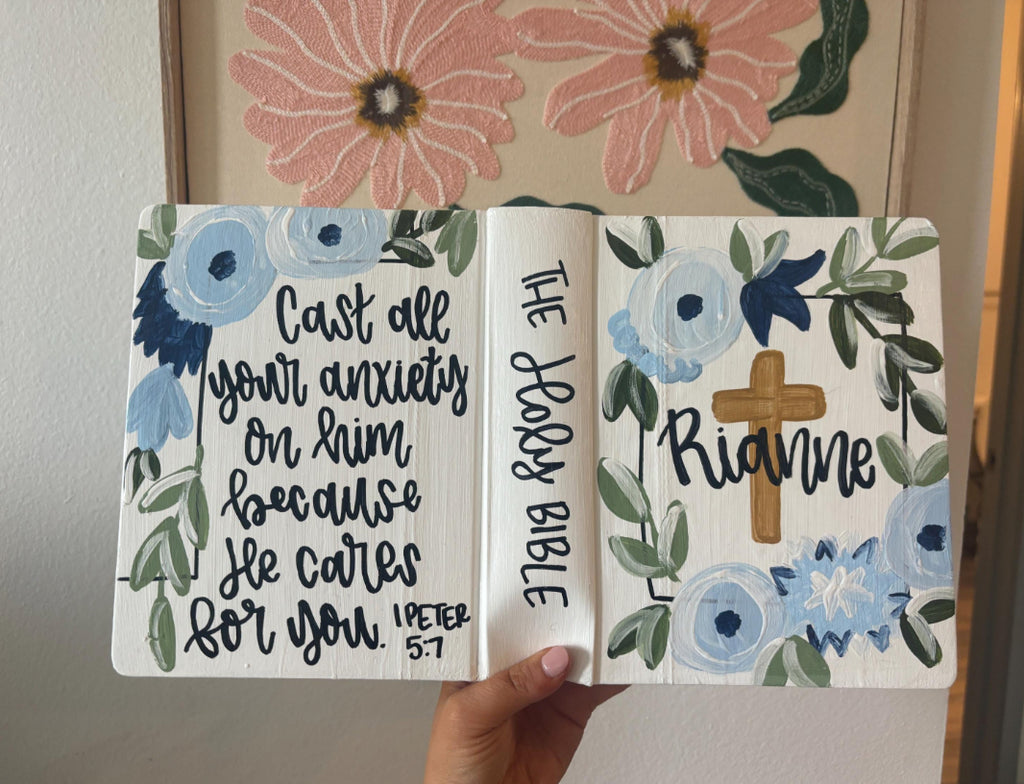 Cast all
your anxiety
on him
because
He cares
for you.
1 PETER
5:7
THE Holy BIBLE
Rianne